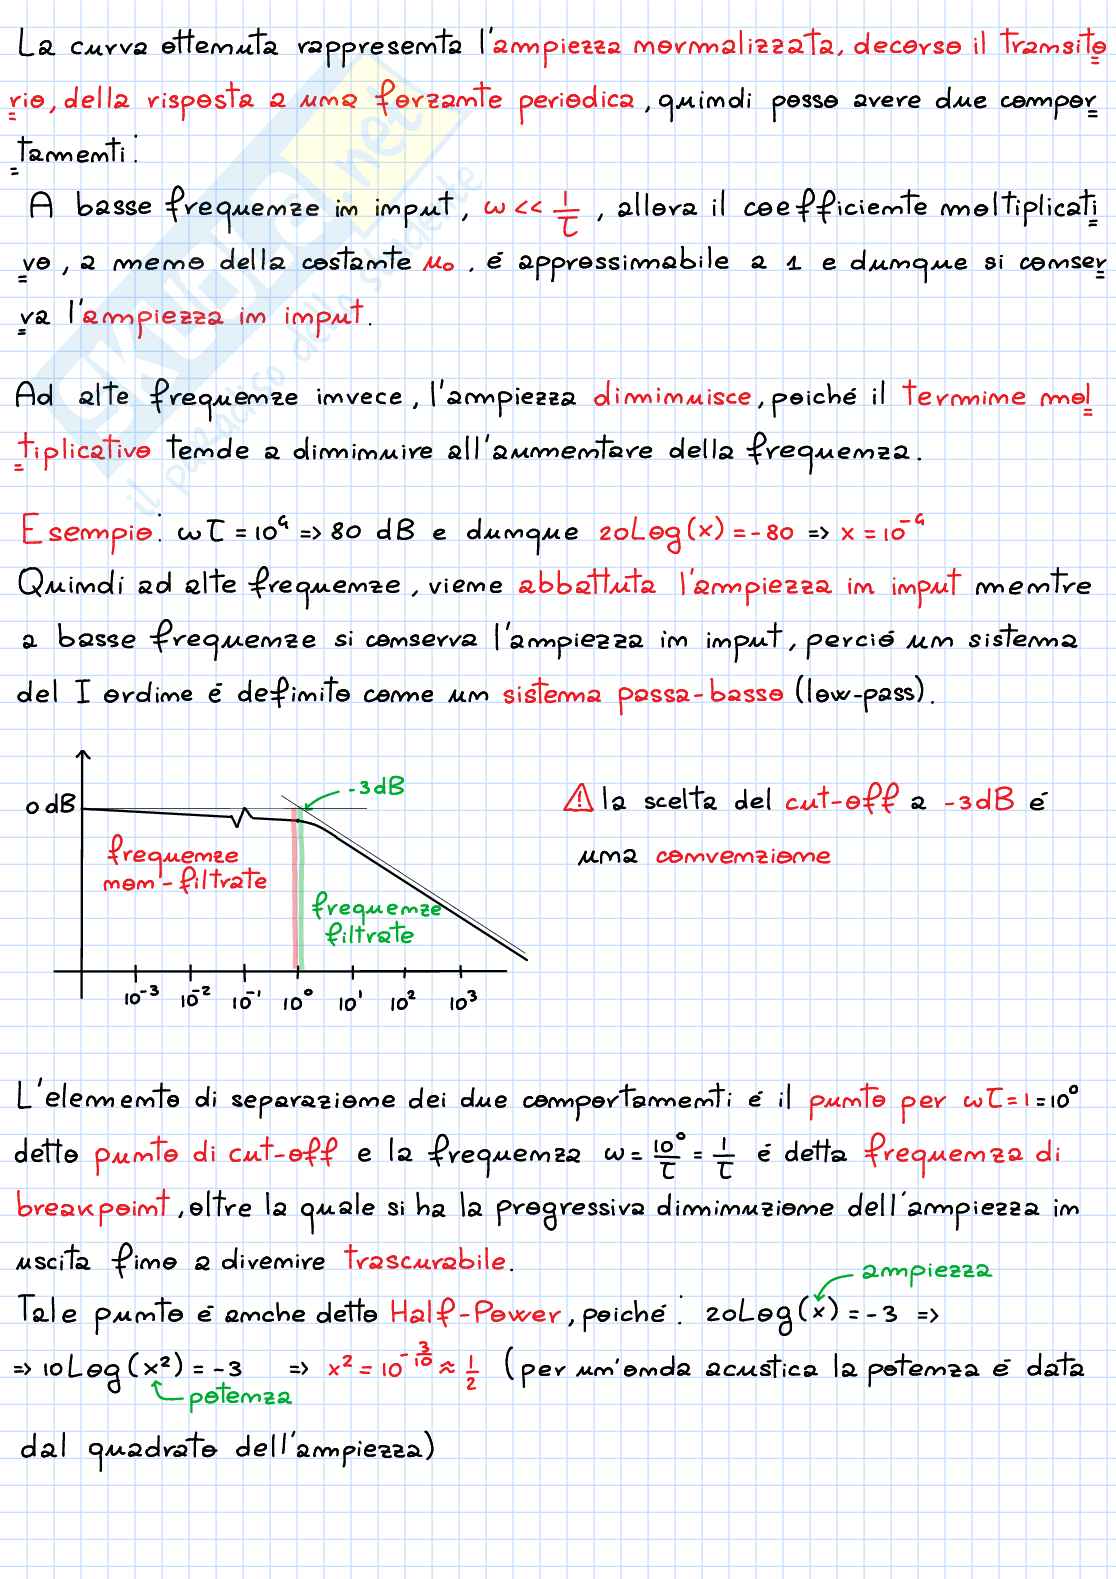 La curva ottenuta rappresenta l'ampiezza normalizzata, decorso il transito
rio, della risposta a una forzante periodica, quindi posso avere due compor
tamenti:
A basse frequenze in input, ω << 1/τ, allora il coefficiente moltiplicati
vo, a meno della costante μ₀, é approssimabile a 1 e dunque si conser
va l'ampiezza in input.
Ad alte frequenze invece, l'ampiezza diminuisce, poiché il termine mol
tiplicativo tende a diminuire all'aumentare della frequenza.
Esempio: ωτ = 10⁴ => 80 dB e dunque 20Log(x) = -80 => x = 10⁻⁴
Quindi ad alte frequenze, viene abbattuta l'ampiezza in input mentre
a basse frequenze si conserva l'ampiezza in input, perció un sistema
del I ordine é definito come un sistema passa-basso (low-pass).
-3dB
0 dB
frequenze
non-filtrate
frequenze
filtrate
10⁻³ 10⁻² 10⁻¹ 10⁰ 10¹ 10² 10³
⚠ la scelta del cut-off a -3dB é
una convenzione
L'elemento di separazione dei due comportamenti é il punto per ωτ=1=10⁰
detto punto di cut-off e la frequenza ω = 10⁰/τ = 1/τ é detta frequenza di
breakpoint, oltre la quale si ha la progressiva diminuzione dell'ampiezza in
uscita fino a divenire trascurabile.
ampiezza
Tale punto é anche detto Half-Power, poiché: 20Log(x) = -3 =>
=> 10Log(x²) = -3 => x² = 10^(-3/10) ≈ 1/2 (per un'onda acustica la potenza é data
potenza
dal quadrato dell'ampiezza)
SKUOLA.net
il paradiso dello studente